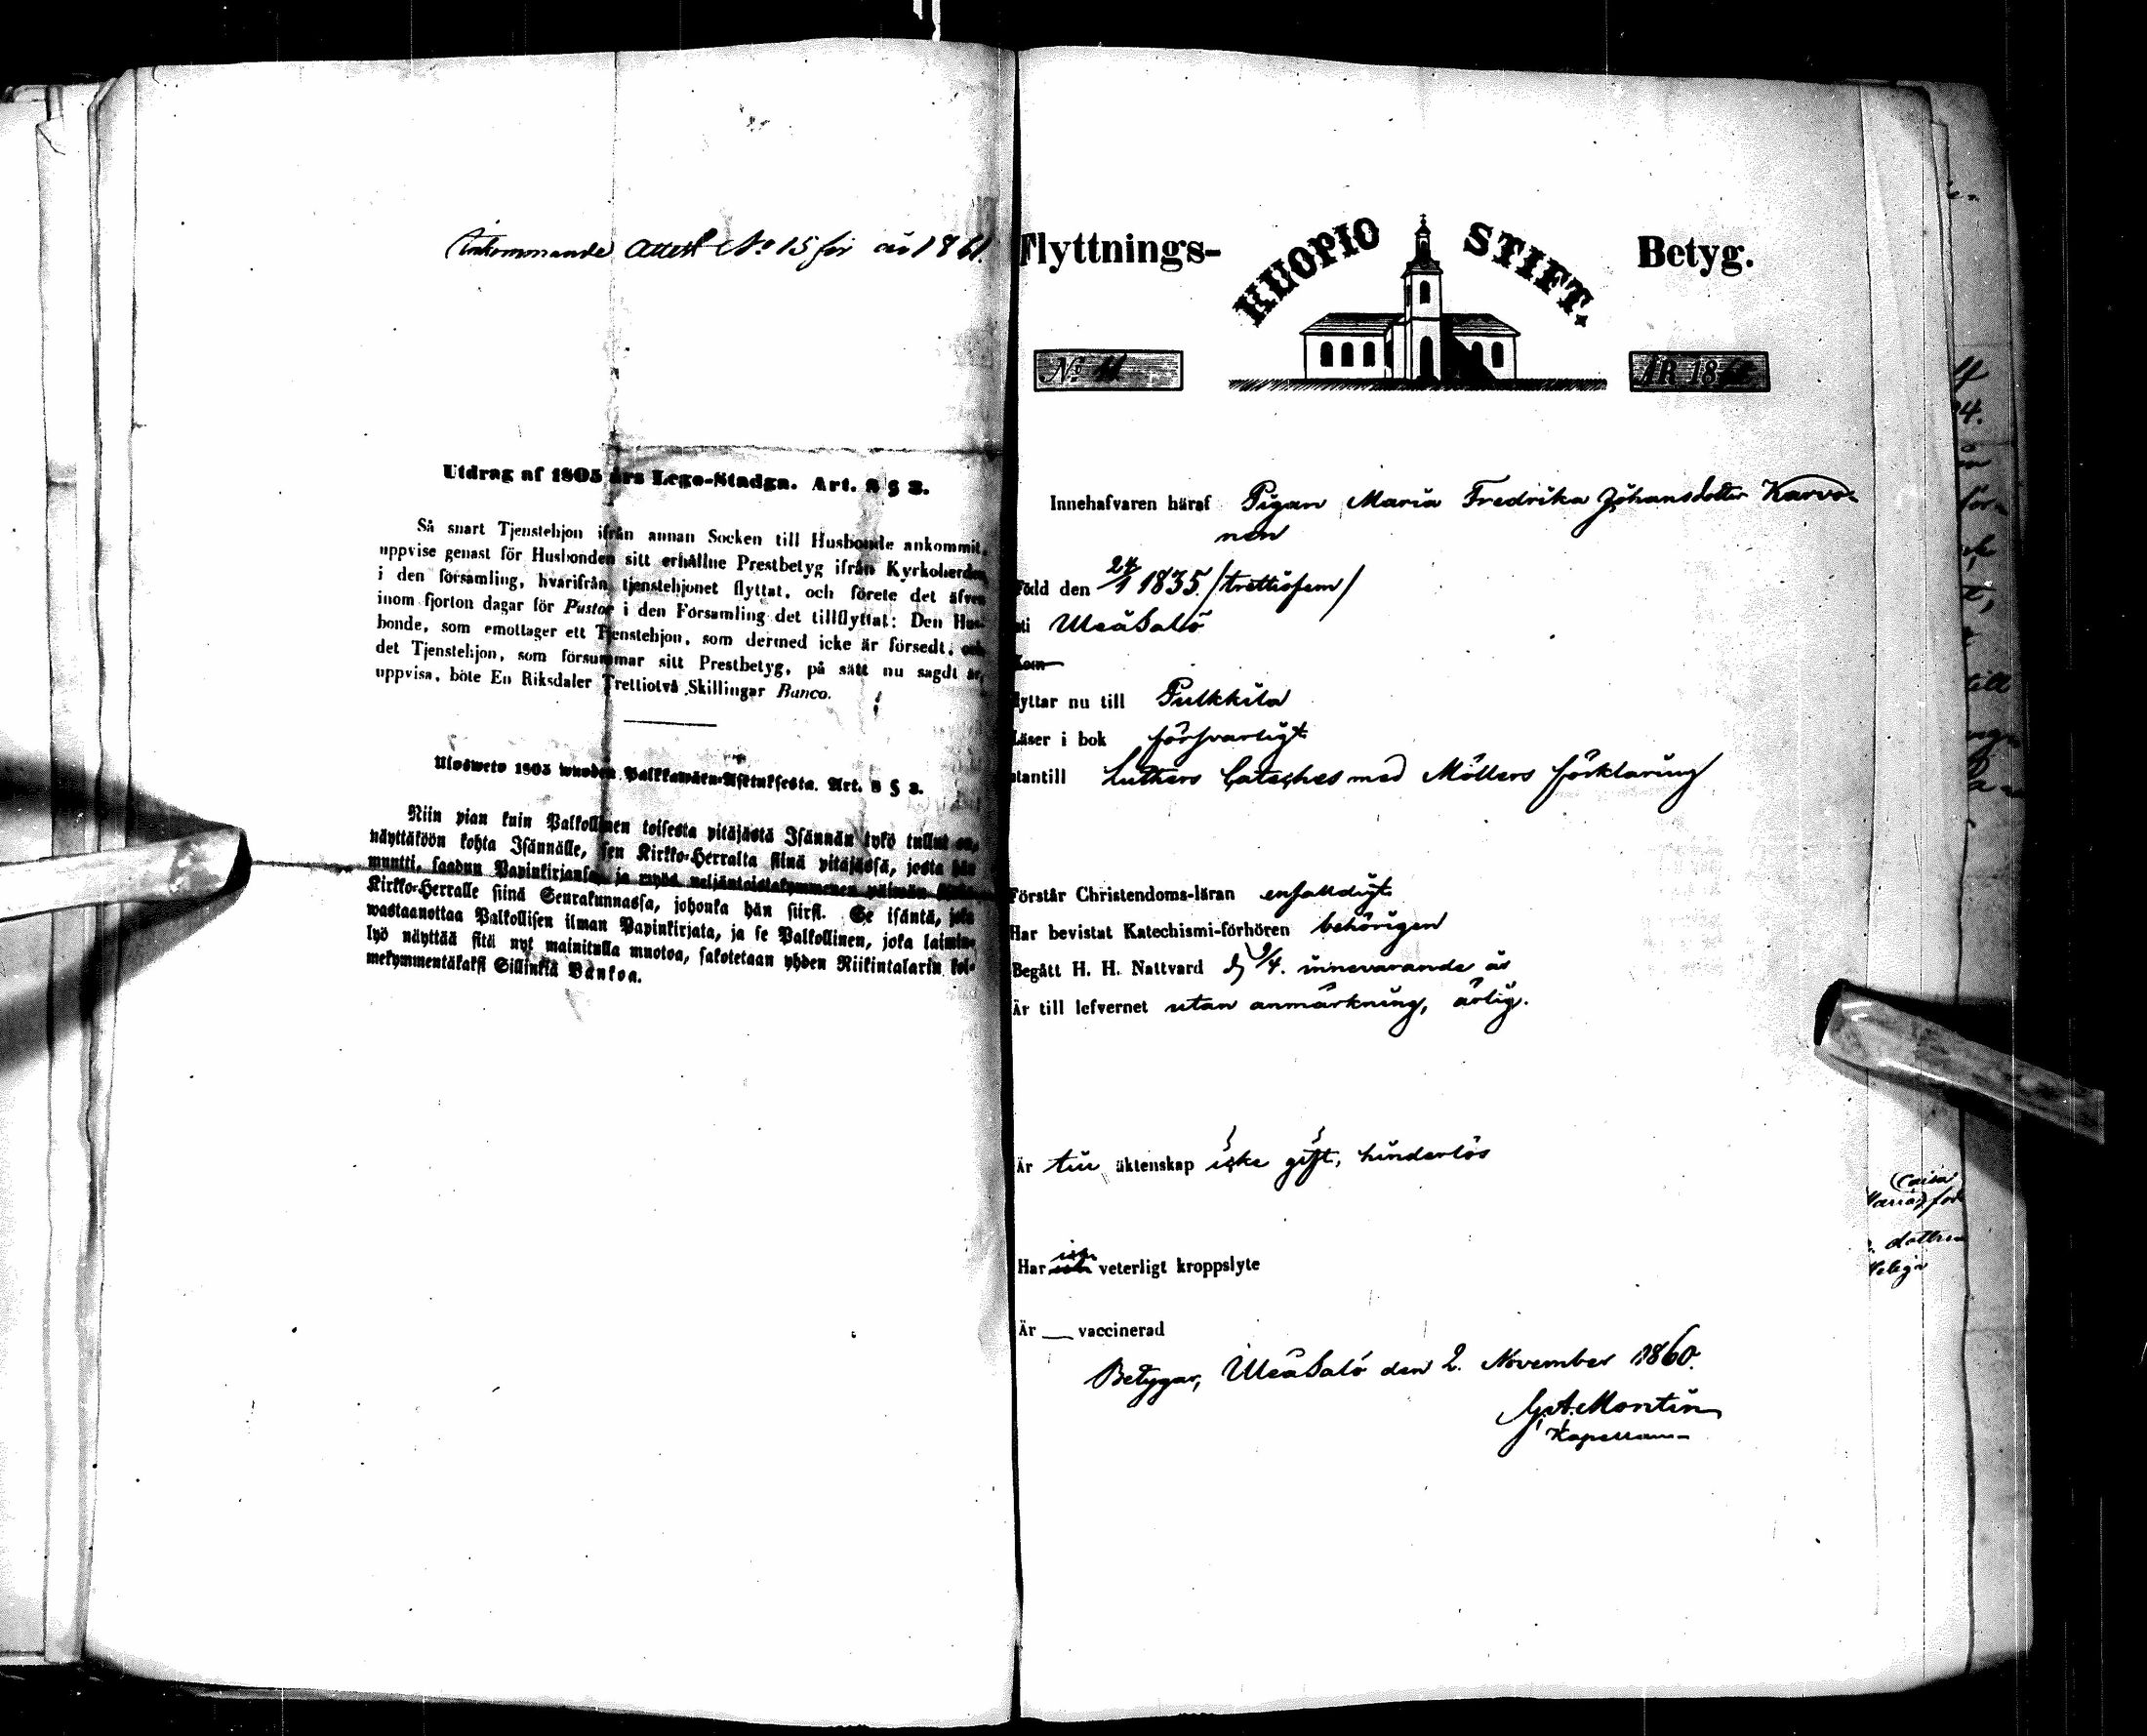 Inkommande Attest No 15 för år 1861.
Utdrag af 1805 års Lego-Stadga. Art. 8 § 3.
Så snart Tjenstehjon ifrån annan Socken till Husbonde ankommit,
uppvise genast för Husbonden sitt erhållne Prestbetyg ifrån Kyrkoherden
i den församling, hvarifrån tjenstehjonet flyttat, och förete det äfven
inom fjorton dagar för Pastor i den Församling det tillflyttat: Den Hus-
bonde, som emottager ett Tjenstehjon, som dermed icke är försedt, och
det Tjenstehjon, som försummar sitt Prestbetyg, på sätt nu sagdt är,
uppvisa, böte En Riksdaler Trettiotvå Skillingar Banco.
Ulosweto 1805 wuoden Palkkawäen-Asetuksesta. Art. 8 § 3.
Niin pian kuin Palkollinen toisesta pitäjästä Isännän tykö tullut on,
näyttäköön kohta Isännälle, sen Kirkko-Herralta siinä pitäjässä, josta hän
muutti, saadun Papinkirjansa, ja myös neljäntoistakymmenen päiwän
Kirkko-Herralle siinä Seurakunnassa, johonka hän siirsi. Se isäntä, joka
wastaanottaa Palkollisen ilman Papinkirjata, ja se Palkollinen, joka laimin-
lyö näyttää sitä nyt mainitulla muotoa, sakotetaan yhden Riikintalarin kol-
mekymmentäkaksi Sillinkiä Bankoa.
Flyttnings- KUOPIO STIFT. Betyg.
No 11 ÅR 18
Innehafvaren häraf Pigan Maria Fredrika Johansdotter Karvo-
nen
Född den 24/1 1835. /trettiofem/
ati UleåSalo
Kom
flyttar nu till Pulkkila
Läser i bok försvarligt
utantill Luthers Cateches med Möllers förklaring
Förstår Christendoms-läran enfaldigt
Har bevistat Katechismi-förhören behörigen
Begått H. H. Nattvard d 9/4. innevarande år
Är till lefvernet utan anmärkning, ärlig.
Är till äktenskap icke gift, hinderlös
Har veterligt kroppslyte
Är __ vaccinerad
Betygar, UleåSalo den 2. November 1860.
G. A. Montin
Kapellan